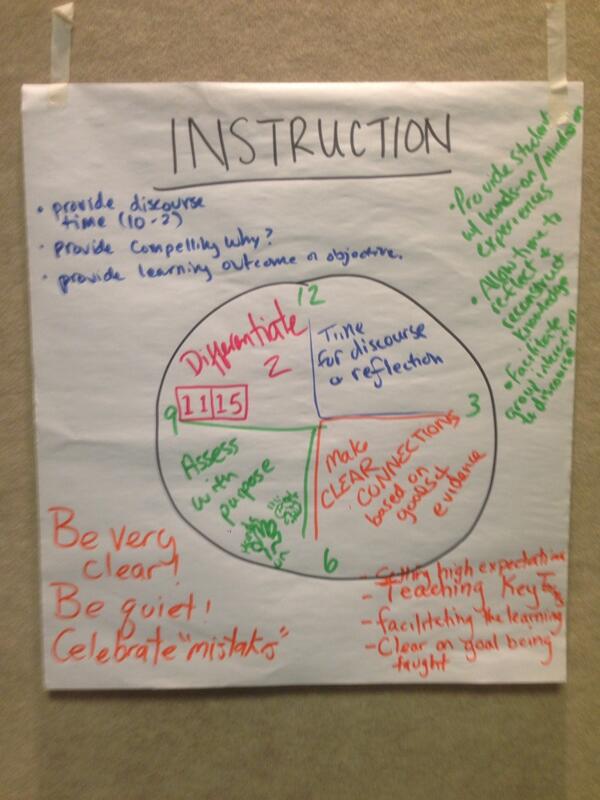 INSTRUCTION
• provide discourse
time (10-2)
• provide compelling why?
• provide learning outcome or objective.
• Provide student
w/ hands-on/minds-on
experiences
• Allow time to
reflect &
reconstruct
knowledge
• Facilitate
group interaction
to discourse
12
3
6
9
Differentiate
2
11 15
Time
for discourse
& reflection
Assess
with
purpose
Make
CLEAR
CONNECTIONS
based on
goals &
evidence
Be very
clear!
Be quiet!
Celebrate "mistakes"
- Setting high expectations
- Teaching Key
- facilitating the learning
- Clear on goal being
taught